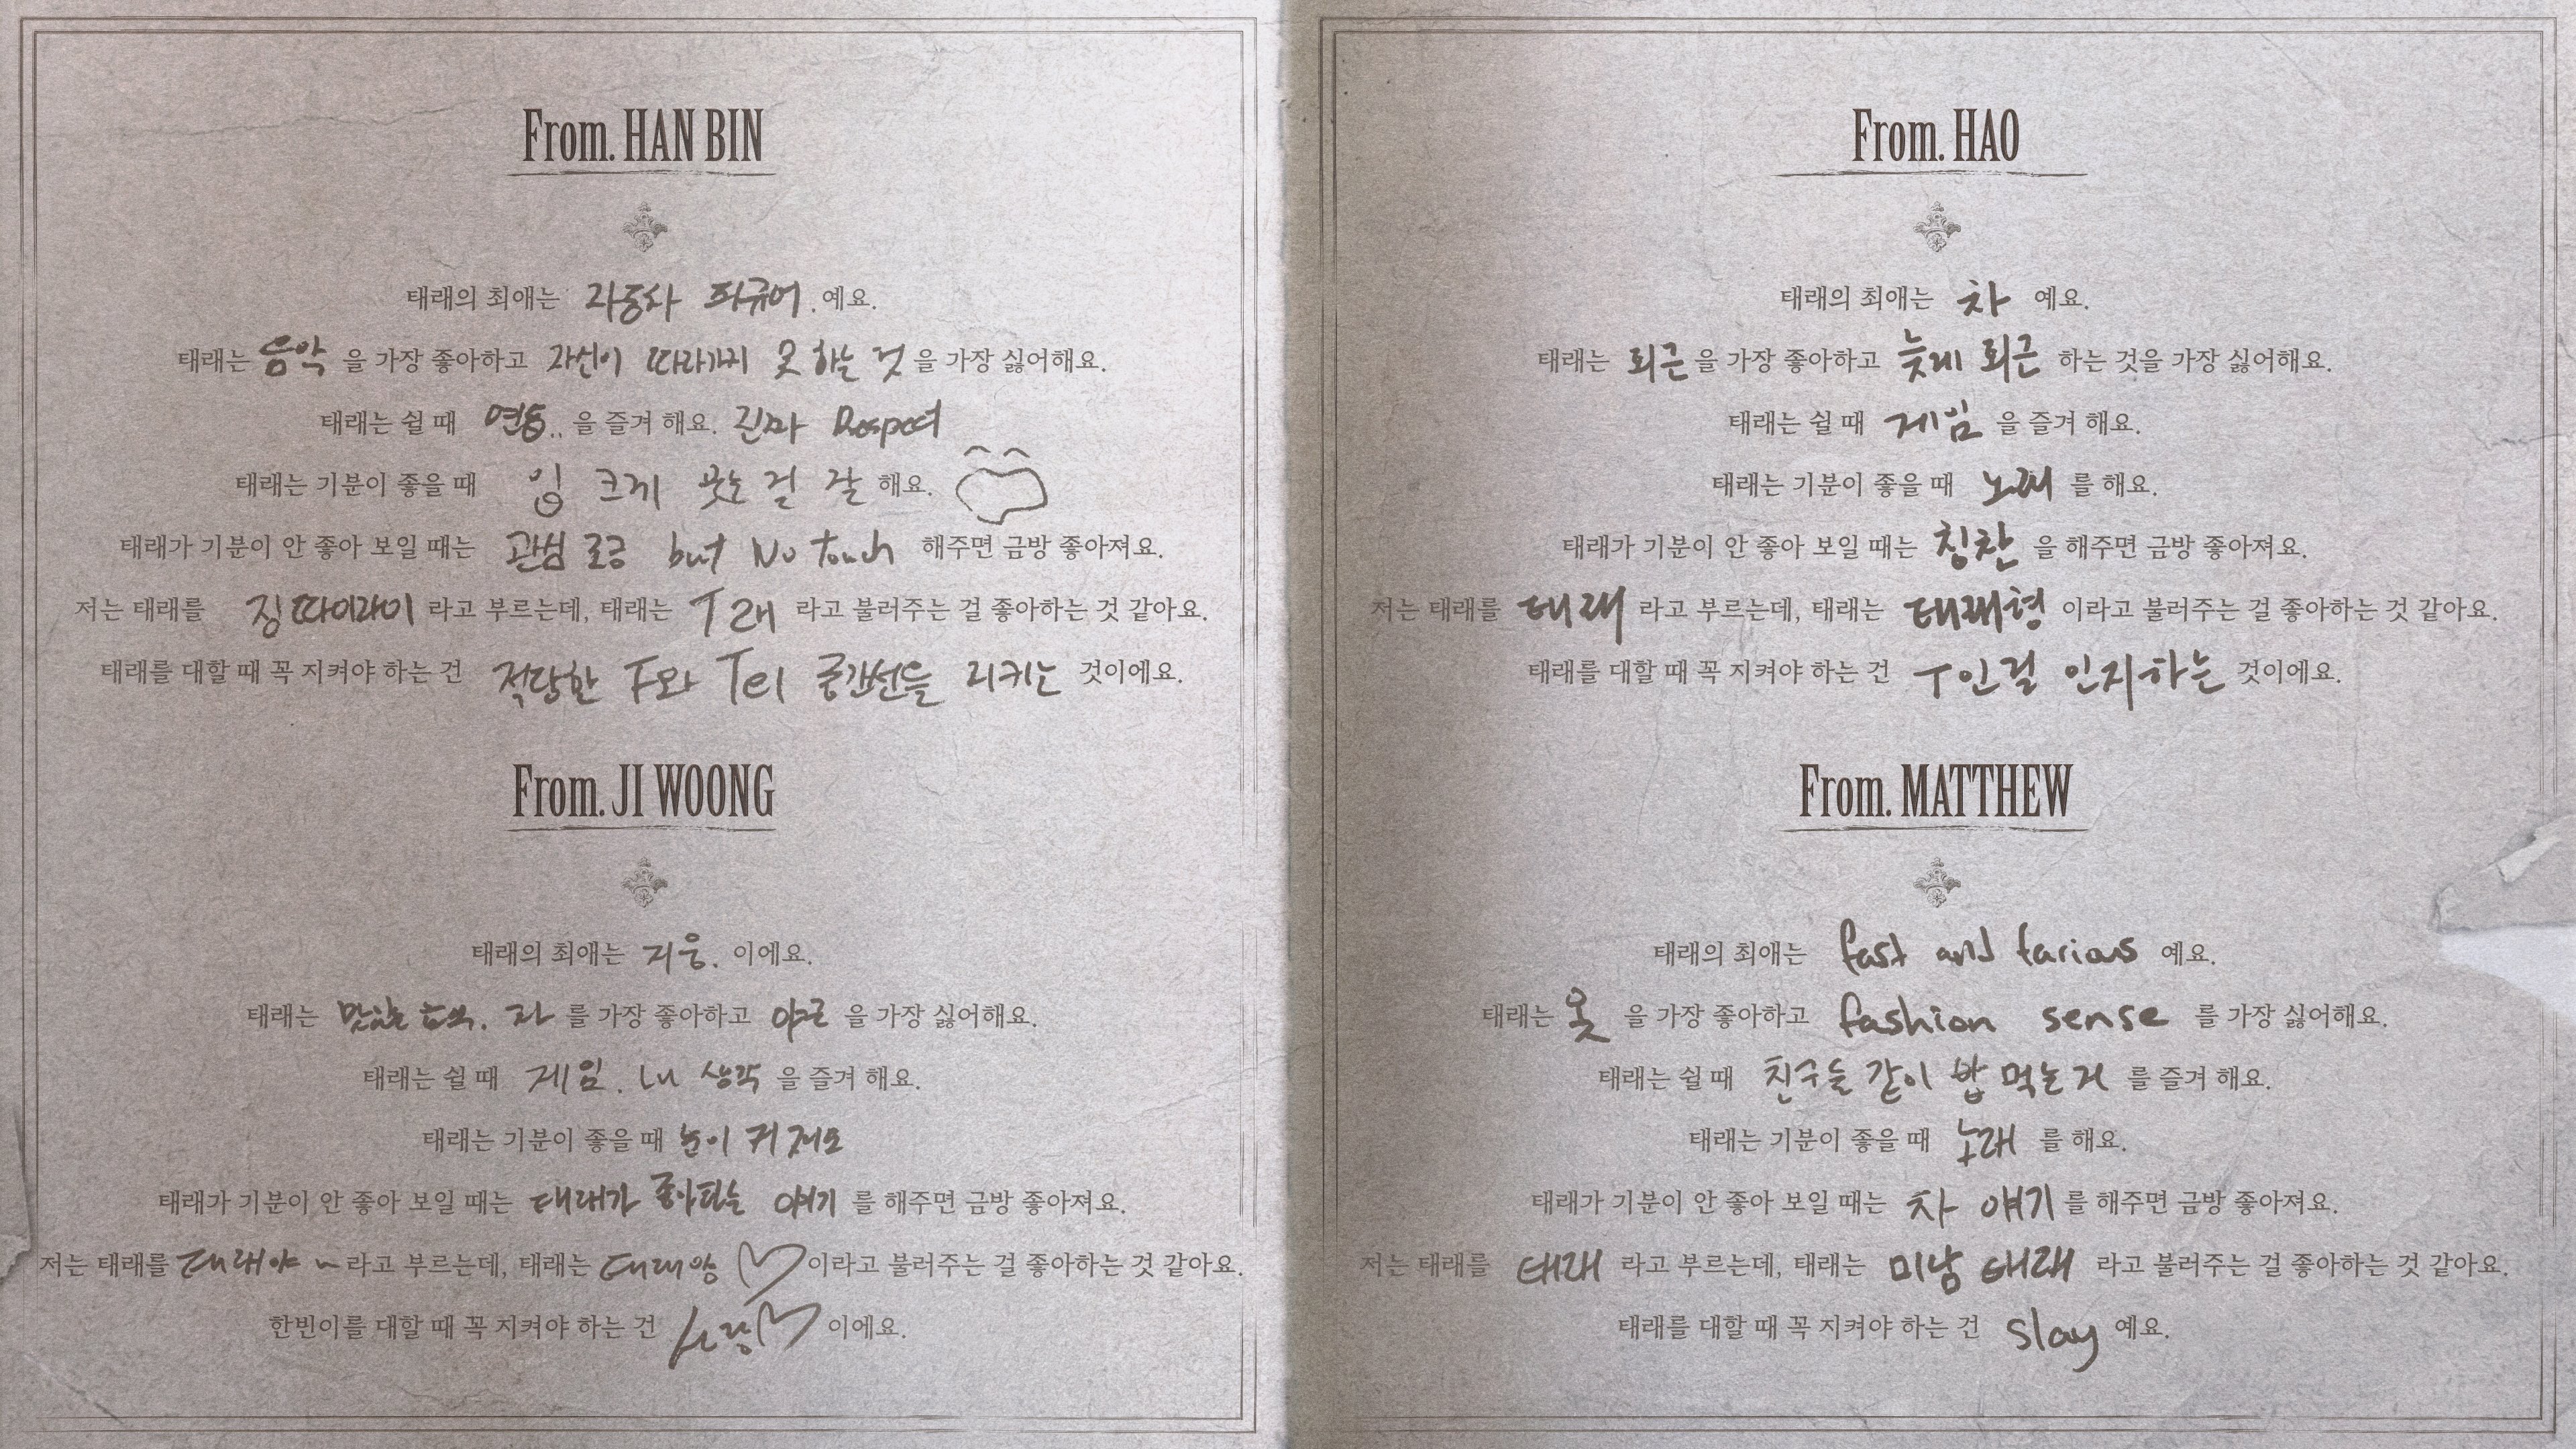 From. HAN BIN
태래의 최애는 자동차 피규어. 예요.
태래는 음악 을 가장 좋아하고 자신이 따라가지 못 하는 것 을 가장 싫어해요.
태래는 쉴 때 연습.. 을 즐겨 해요. 진짜 Respect
태래는 기분이 좋을 때 입 크게 웃는 걸 잘 해요.
태래가 기분이 안 좋아 보일 때는 관심 조금 but No touch 해주면 금방 좋아져요.
저는 태래를 징따이라이 라고 부르는데, 태래는 T래 라고 불러주는 걸 좋아하는 것 같아요.
태래를 대할 때 꼭 지켜야 하는 건 적당한 F와 T의 중간선을 지키는 것이에요.
From. JI WOONG
태래의 최애는 지웅. 이에요.
태래는 맛있는 음식. 차 를 가장 좋아하고 야근 을 가장 싫어해요.
태래는 쉴 때 게임. 내 생각 을 즐겨 해요.
태래는 기분이 좋을 때 눈이 커져요
태래가 기분이 안 좋아 보일 때는 태래가 좋아하는 얘기 를 해주면 금방 좋아져요.
저는 태래를 태래야~ 라고 부르는데, 태래는 태래양 ♡ 이라고 불러주는 걸 좋아하는 것 같아요.
한빈이를 대할 때 꼭 지켜야 하는 건 사랑♡ 이에요.
From. HAO
태래의 최애는 차 예요.
태래는 퇴근 을 가장 좋아하고 늦게 퇴근 하는 것을 가장 싫어해요.
태래는 쉴 때 게임 을 즐겨 해요.
태래는 기분이 좋을 때 노래 를 해요.
태래가 기분이 안 좋아 보일 때는 칭찬 을 해주면 금방 좋아져요.
저는 태래를 태래 라고 부르는데, 태래는 태래형 이라고 불러주는 걸 좋아하는 것 같아요.
태래를 대할 때 꼭 지켜야 하는 건 T인걸 인지하는 것이에요.
From. MATTHEW
태래의 최애는 fast and farious 예요.
태래는 옷 을 가장 좋아하고 fashion sense 를 가장 싫어해요.
태래는 쉴 때 친구들 같이 밥 먹는거 를 즐겨 해요.
태래는 기분이 좋을 때 노래 를 해요.
태래가 기분이 안 좋아 보일 때는 차 얘기 를 해주면 금방 좋아져요.
저는 태래를 태래 라고 부르는데, 태래는 미남 태래 라고 불러주는 걸 좋아하는 것 같아요.
태래를 대할 때 꼭 지켜야 하는 건 slay 예요.